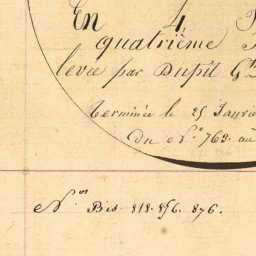 En 4
quatrième
levée par Dupil G
Terminée le 25 Janvie
Du N.° 769. au
N.os Bis. 818. 856. 876.